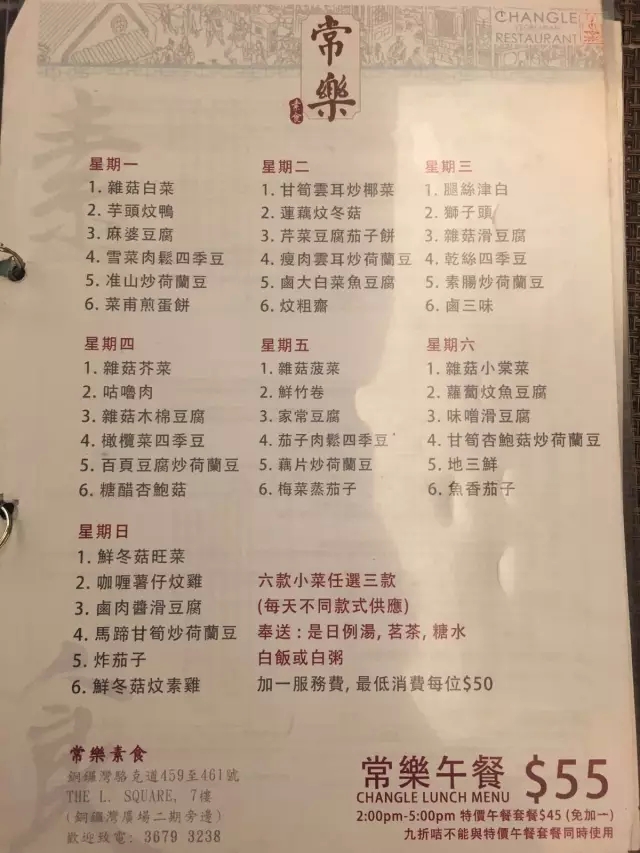 CHANGLE
RESTAURANT
常樂
素食
星期一
1. 雜菇白菜
2. 芋頭炆鴨
3. 麻婆豆腐
4. 雪菜肉鬆四季豆
5. 准山炒荷蘭豆
6. 菜甫煎蛋餅
星期二
1. 甘筍雲耳炒椰菜
2. 蓮藕炆冬菇
3. 芹菜豆腐茄子餅
4. 瘦肉雲耳炒荷蘭豆
5. 鹵大白菜魚豆腐
6. 炆粗齋
星期三
1. 腿絲津白
2. 獅子頭
3. 雜菇滑豆腐
4. 乾絲四季豆
5. 素腸炒荷蘭豆
6. 鹵三味
星期四
1. 雜菇芥菜
2. 咕嚕肉
3. 雜菇木棉豆腐
4. 橄欖菜四季豆
5. 百頁豆腐炒荷蘭豆
6. 糖醋杏鮑菇
星期五
1. 雜菇菠菜
2. 鮮竹卷
3. 家常豆腐
4. 茄子肉鬆四季豆
5. 藕片炒荷蘭豆
6. 梅菜蒸茄子
星期六
1. 雜菇小棠菜
2. 蘿蔔炆魚豆腐
3. 味噌滑豆腐
4. 甘筍杏鮑菇炒荷蘭豆
5. 地三鮮
6. 魚香茄子
星期日
1. 鮮冬菇旺菜
2. 咖喱薯仔炆雞
3. 鹵肉醬滑豆腐
4. 馬蹄甘筍炒荷蘭豆
5. 炸茄子
6. 鮮冬菇炆素雞
六款小菜任選三款
(每天不同款式供應)
奉送 : 是日例湯, 茗茶, 糖水
白飯或白粥
加一服務費, 最低消費每位$50
常樂素食
銅鑼灣駱克道459至461號
THE L. SQUARE, 7樓
(銅鑼灣廣場二期旁邊)
歡迎致電: 3679 3238
常樂午餐 $55
CHANGLE LUNCH MENU
2:00pm-5:00pm 特價午餐套餐$45 (免加一)
九折咭不能與特價午餐套餐同時使用